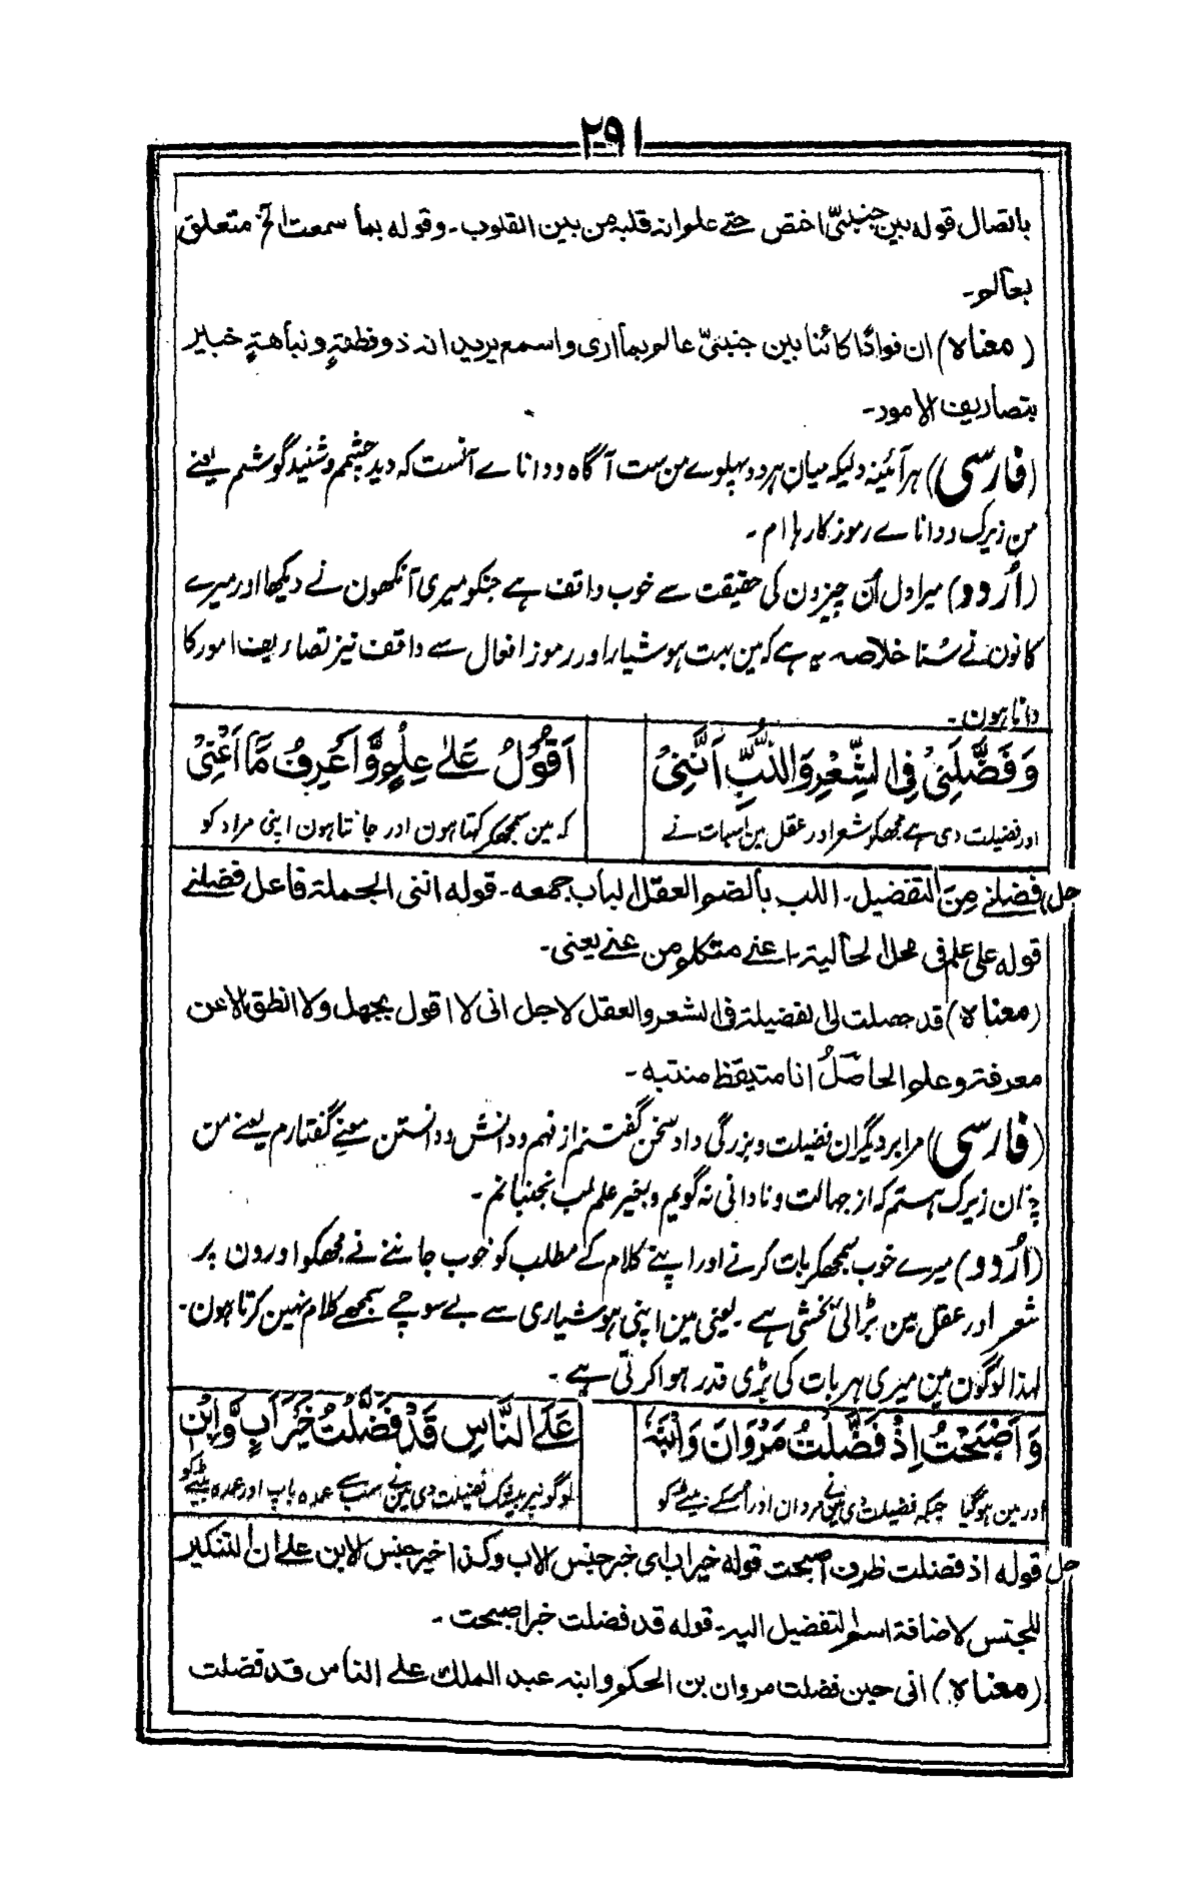 ۲۹۱
باتصال قوله بين جنبتىّ اختص حتے علم انه قلبه من بين القلوب۔ وقوله بما سمعت الخ متعلق
بعالم۔
(معناه) ان فوادًا كائنا بين جنبتىّ عالم بما اری واسمع يريد انه ذو فطنةٍ ونباهةٍ خبير
بتصاريف الامور۔
(فارسی) ہر آئینہ دلیکہ میان ہر دو پہلوے من ست آگاہ و داناے آنست کہ دید چشمم و شنید گوشم یعنے
من زیرک و داناے رموز کارہا ام۔
(اُردو) میرا دل اُن چیزون کی حقیقت سے خوب واقف ہے جنکو میری آنکھون نے دیکھا اور میرے
کانون نے سُنا خلاصہ یہ ہے کہ مین بہت ہوشیار اور رموز افعال سے واقف نیز تصاریف امور کا
دانا ہون۔
وَفَضَّلَنِیْ فِی الشِّعْرِ وَاللُّبِّ اَنَّنِیْ
اَقُوْلُ عَلٰے عِلْمٍ وَّاَعْرِفُ مَا اَعْنِیْ
اور فضیلت دی ہے مجھکو شعر اور عقل مین اسبات نے
کہ مین سمجھکر کہتا ہون اور جانتا ہون اپنی مراد کو
حل فضلنے مِنَ التفضيل۔ اللب بالضم العقل الباب جمعه۔ قوله اننی الجملة فاعل فضلنے
قوله علی علم فی محل الحالية اعنے متكلم من عنے يعنی۔
(معناه) قد حصلت لی الفضيلة فی الشعر والعقل لاجل انی لا اقول بجهل ولا انطق الا عن
معرفة وعلم الحاصلُ انا متيقظ منتبه۔
(فارسی) مرا بر دیگران فضیلت و بزرگی داد سخن گفتنم از فہم و دانش و دانستن معنے گفتارم یعنے من
چنان زیرک ہستم کہ از جہالت و نادانی نہ گویم و بغیر علم لب نجنبانم۔
(اُردو) میرے خوب سمجھکر بات کرنے اور اپنے کلام کے مطلب کو خوب جاننے نے مجھکو اورون پر
شعر اور عقل مین بڑائی بخشی ہے۔ یعنی مین اپنی ہوشیاری سے بے سوچے سمجھے کلام نہین کرتا ہون۔
لہذا لوگون مین میری ہر بات کی بڑی قدر ہوا کرتی ہے۔
وَاَصْبَحْتُ اِذْ فَضَّلْتُ مَرْوَانَ وَابْنَهٗ
عَلَے النَّاسِ قَدْ فَضَّلْتُ خَیْرَ اَبٍ وَّابْنِ
اور مین ہوگیا جبکہ فضیلت دی مینے مردان اور اُسکے بیٹے کو
لوگونپر بیشک فضیلت دی مین نے سب سے عمدہ باپ اور عمدہ بیٹے کو
حل قوله اذ فضلت ظرف اصبحت قوله خير اب ای خير جنس الاب وكذا خير جنس الابن علے ان التنكير
للجنس لاضافة اسم التفضيل اليه۔ قوله قد فضلت خبر اصبحت۔
(معناه) انی حين فضلت مروان بن الحكم وابنه عبد الملك علے الناس قد فضلت